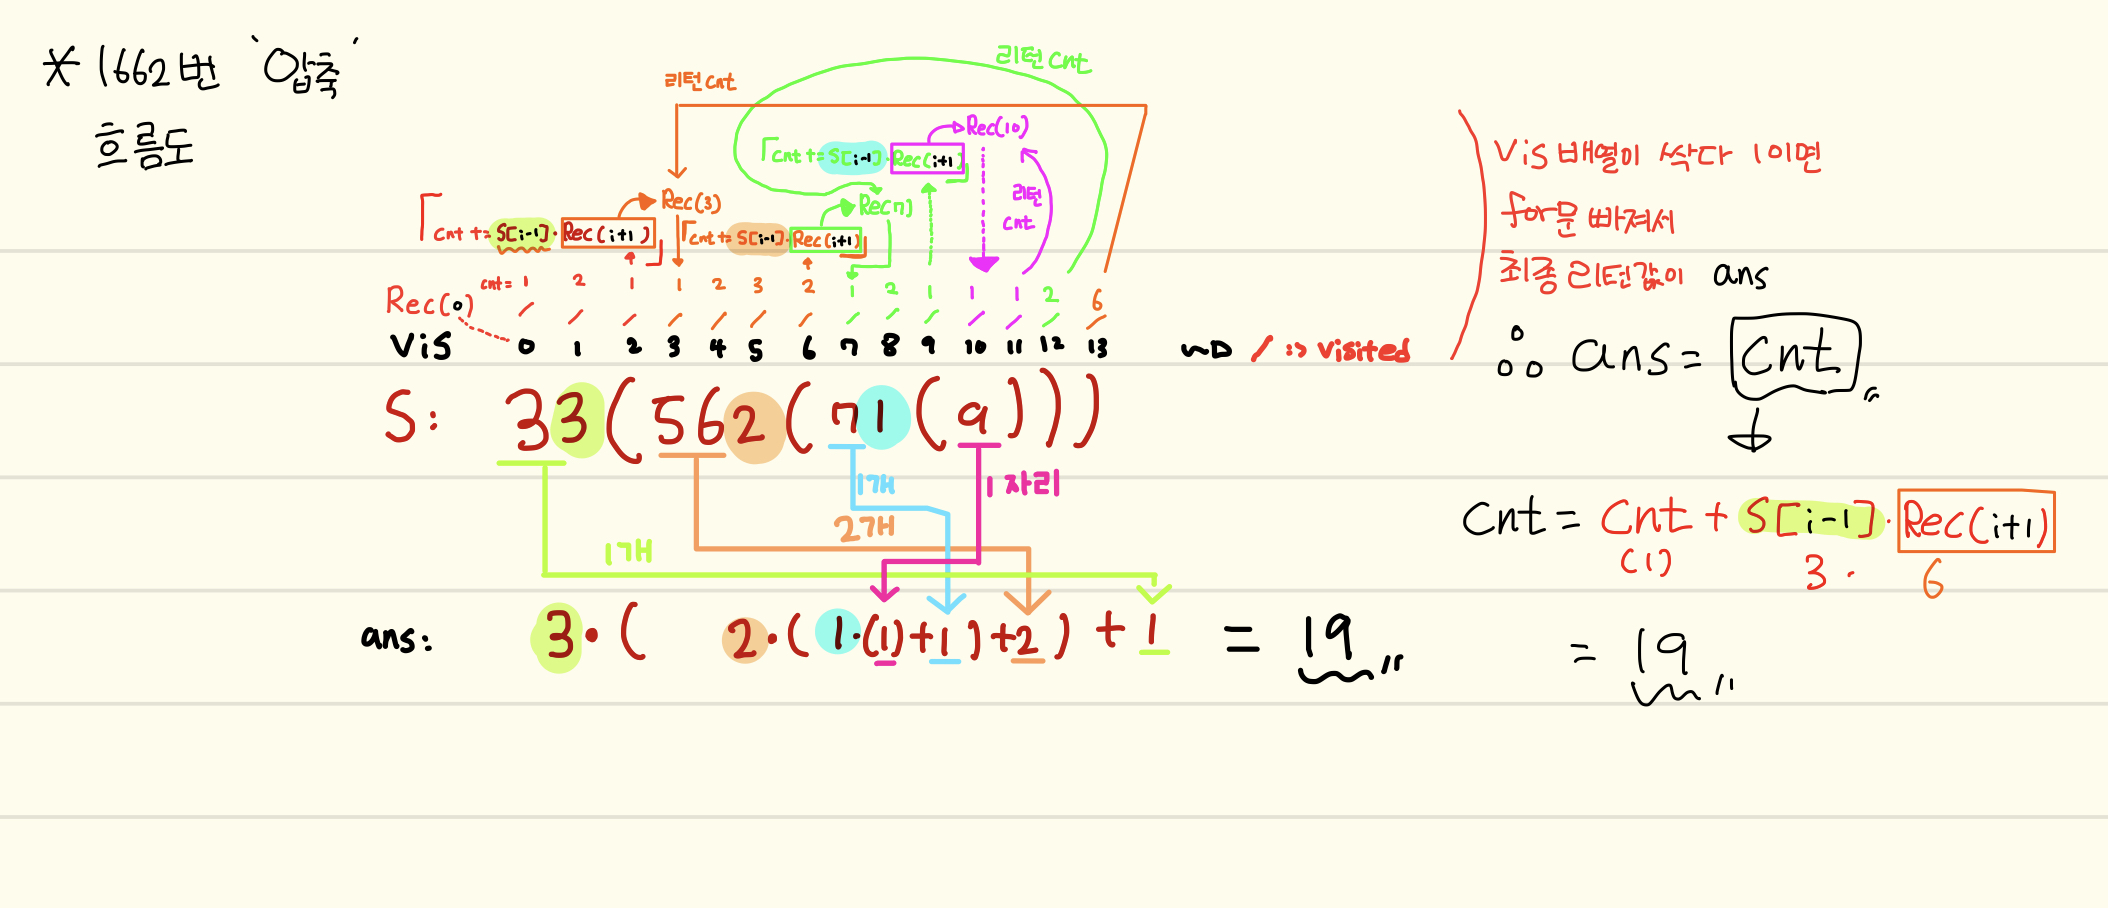 * 1662번 '압축'
흐름도
리턴 cnt
리턴 cnt
Rec(10)
cnt += S[i-1]·Rec(i+1)
리턴
cnt
Rec(3)
Rec(7)
cnt += S[i-1]·Rec(i+1)
cnt += S[i-1]·Rec(i+1)
Rec(0)
cnt= 1 2 1 1 2 3 2 1 2 1 1 1 2 6
vis 0 1 2 3 4 5 6 7 8 9 10 11 12 13 / => visited
S: 33(562(71(9)))
1개
1자리
2개
1개
ans: 3·( 2·(1·(1)+1)+2)+1 = 19
vis 배열이 싹다 1이면
for문 빠져서
최종 리턴값이 ans
∴ ans = cnt
cnt = cnt + S[i-1]·Rec(i+1)
(1) 3· 6
= 19